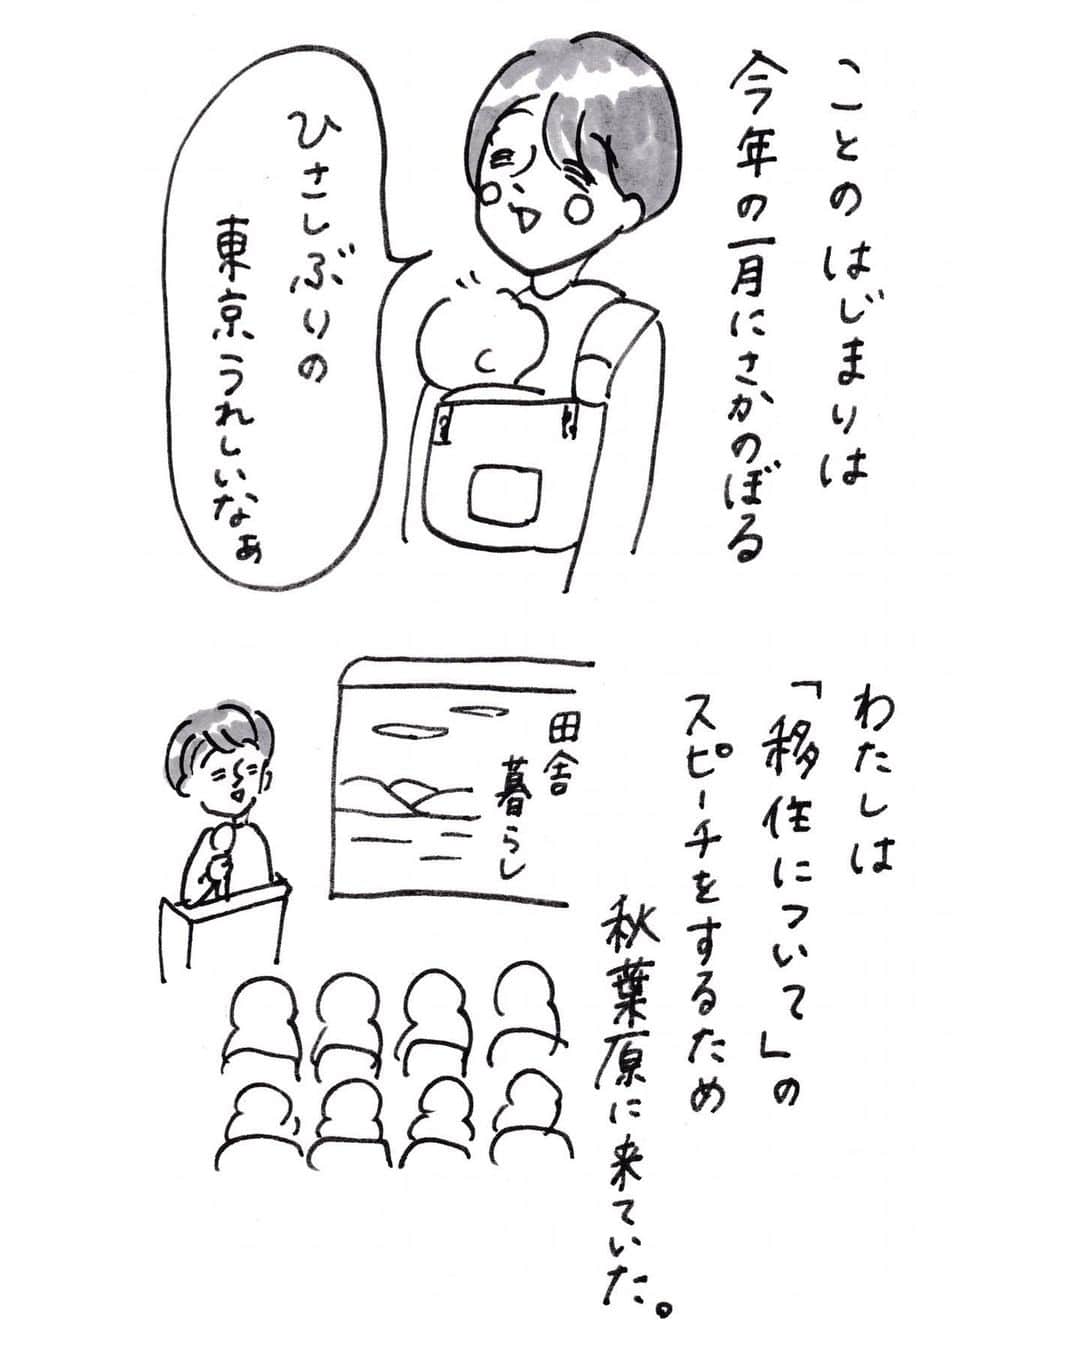 ことのはじまりは
今年の一月にさかのぼる
ひさしぶりの
東京うれしいなぁ
わたしは
「移住について」の
スピーチをするため
秋葉原に来ていた。
田舎
暮らし